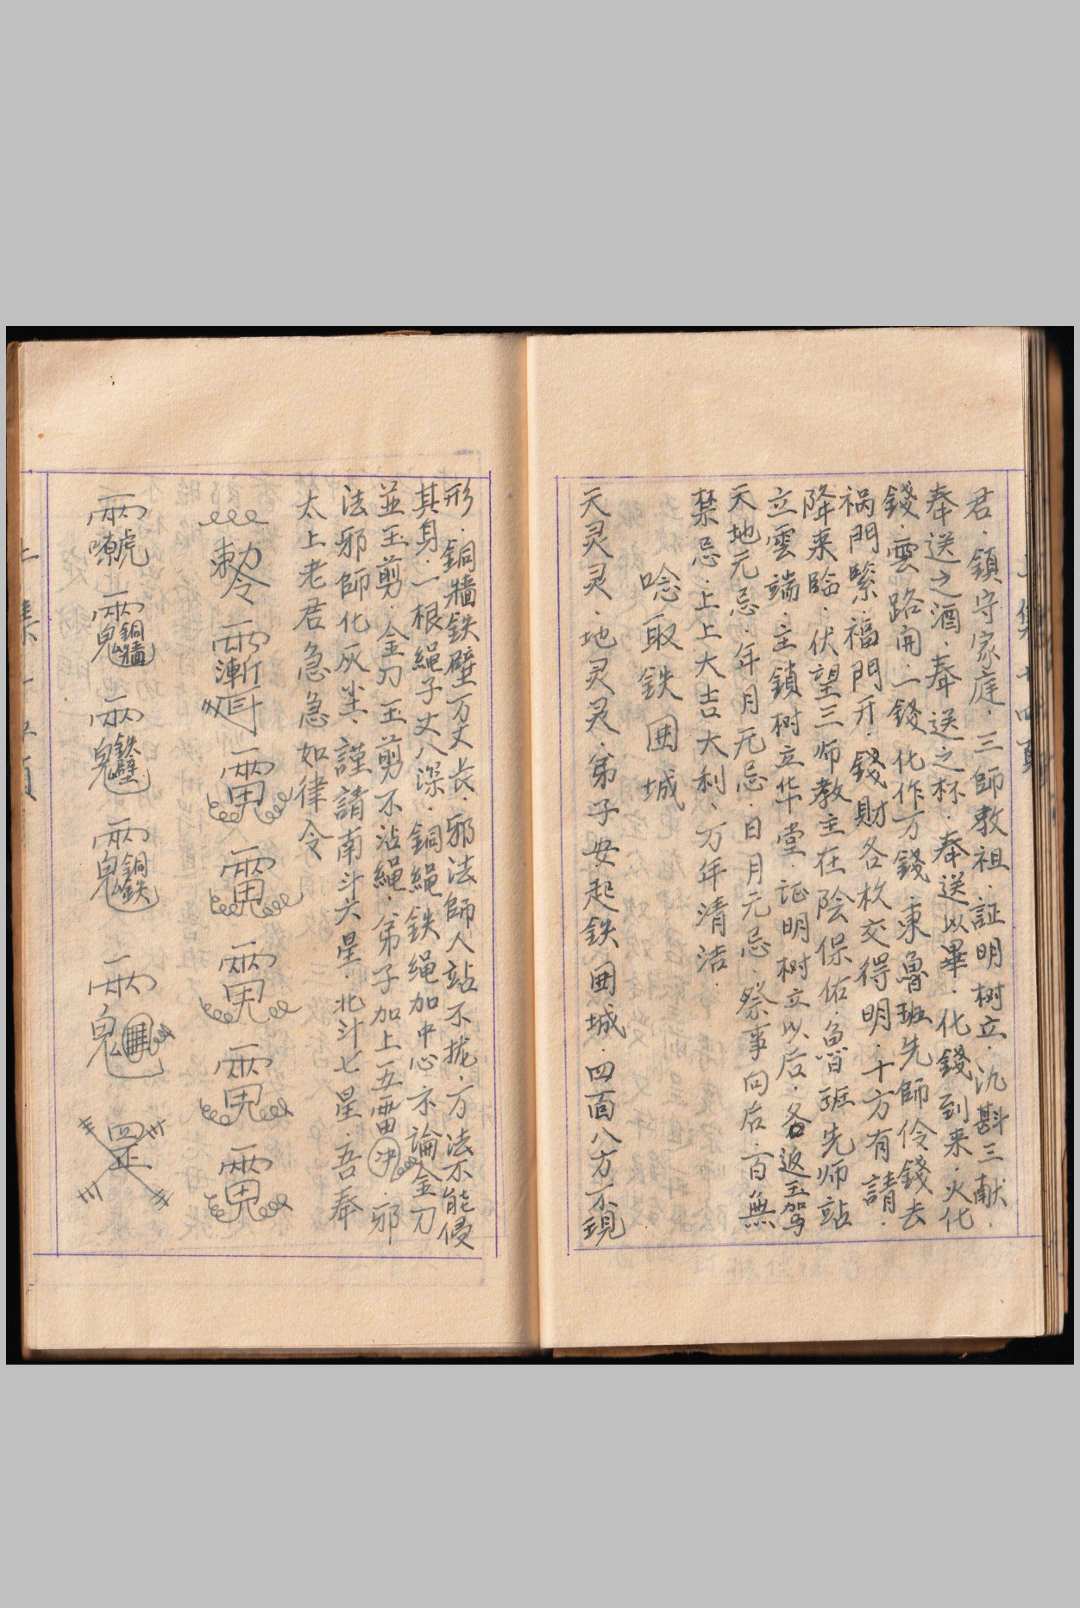 君．鎮守家庭．三師教祖．証明树立．氿斟三献．
奉送之酒．奉送之杯．奉送以畢．化錢到来．火化
錢．雲路開．一錢化作万錢．東魯班先師伶錢去
祸門緊．福門开．錢財各枚交得明．十方有請．
降来臨．伏望三师教主在陰保佑．魯班先师站
立雲端．主鎖树立华堂．証明树立以后．各返玉駕
天地元忌．年月元忌．日月元忌．祭事向后．百無
禁忌．上上大吉大利．万年清洁．
唸取鉄囲城
天灵灵．地灵灵．弟子安起鉄囲城．四面八方不現
形．銅牆鉄壁万丈長．邪法師人站不拢．方法不能侵
其身．一根繩子丈八深．銅繩鉄绳加中心．不論金刀
並玉剪．金刀玉剪不沾繩．弟子加上五雷决．邪
法邪師化灰尘．謹請南斗六星．北斗七星．吾奉
太上老君急急如律令
勅令